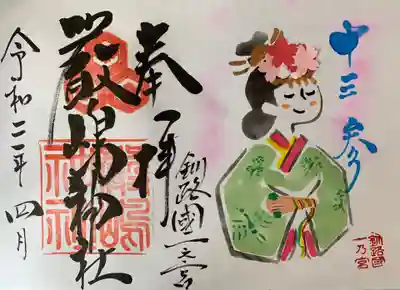 十三参り
釧路國
一乃宮
奉拝
釧路國一之宮
嚴嶋神社
嚴島
神社
令和二年四月